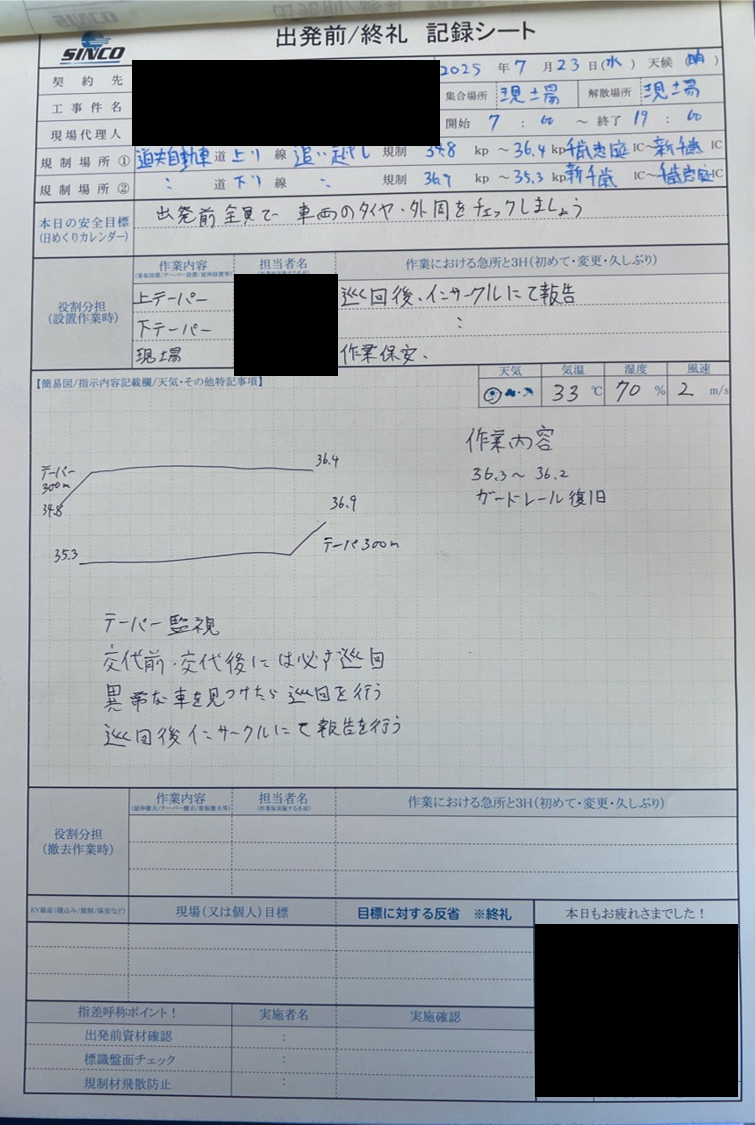 出発前/終礼 記録シート
SINCO
契約先
2025 年 7 月 23 日 (水) 天候 (晴)
工事件名
集合場所 現土場 解散場所 現土場
現場代理人
開始 7 : 00 ~ 終了 19 : 00
規制場所① 道央自動車 道 上り 線 追い越し 規制 34.8 kp ~ 36.4 kp 千歳恵庭 IC~ 新千歳 IC
規制場所② 〃 道 下り 線 〃 規制 36.9 kp ~ 35.3 kp 新千歳 IC~ 千歳恵庭 IC
本日の安全目標
(日めくりカレンダー)
出発前全員で 車両のタイヤ・外周をチェックしましょう
役割分担
(設置作業時)
作業内容 担当者名 作業における急所と3H(初めて・変更・久しぶり)
上テーパー 巡回後、インサークルにて報告
下テーパー :
現場 作業保安、
【簡易図/指示内容記載欄/天気・その他特記事項】
天気 気温 湿度 風速
33 ℃ 70 % 2 m/s
作業内容
36.3 ~ 36.2
ガードレール復旧
テーパー
300m
34.8
36.4
36.9
35.3
テーパ300m
テーパー監視
交代前・交代後には必ず巡回
異常な車を見つけたら巡回を行う
巡回後インサークルにて報告を行う
役割分担
(撤去作業時)
作業内容 担当者名 作業における急所と3H(初めて・変更・久しぶり)
KY場面(積込み/規制/保安など) 現場(又は個人)目標 目標に対する反省 ※終礼 本日もお疲れさまでした!
指差呼称ポイント! 実施者名 実施確認
出発前資材確認 :
標識盤面チェック :
規制材飛散防止 :